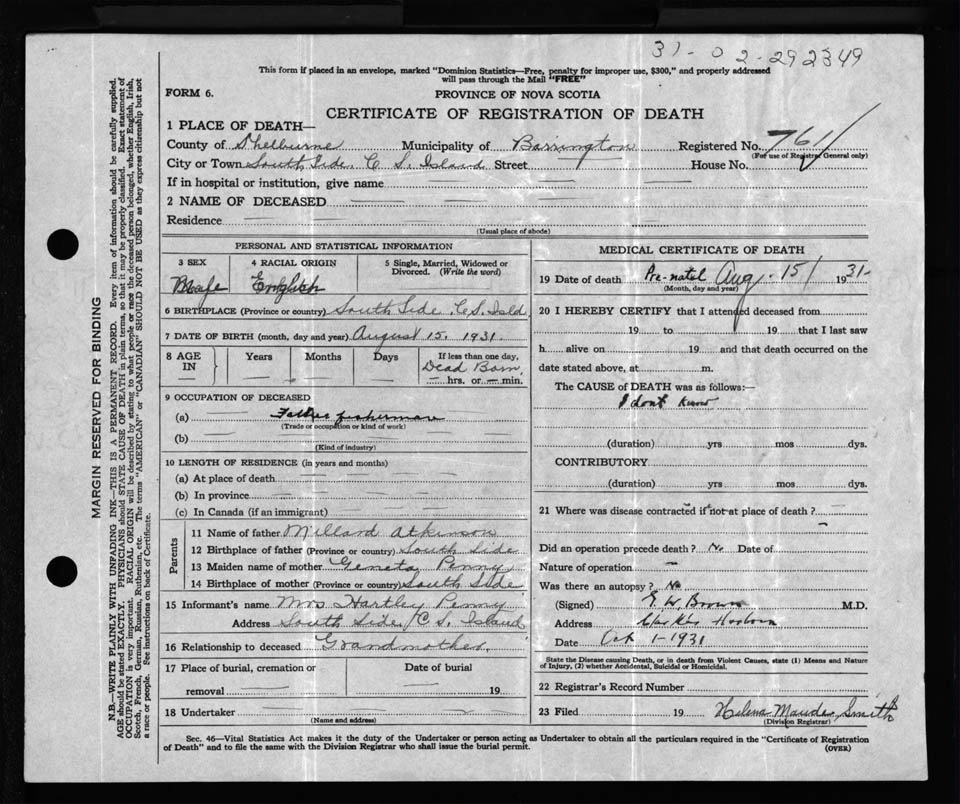 31-02-292349
This form if placed in an envelope, marked "Dominion Statistics—Free, penalty for improper use, $300," and properly addressed
will pass through the Mail "FREE"
FORM 6.
PROVINCE OF NOVA SCOTIA
CERTIFICATE OF REGISTRATION OF DEATH
1 PLACE OF DEATH—
County of Shelburne Municipality of Barrington Registered No. 761
(For use of Registrar General only)
City or Town South Side C S. Island Street House No.
If in hospital or institution, give name
2 NAME OF DECEASED
Residence
(Usual place of abode)
PERSONAL AND STATISTICAL INFORMATION
3 SEX
Male
4 RACIAL ORIGIN
English
5 Single, Married, Widowed or
Divorced. (Write the word)
6 BIRTHPLACE (Province or country) South Side, C.S. Isld
7 DATE OF BIRTH (month, day and year) August 15, 1931.
8 AGE
IN
Years
Months
Days
If less than one day,
Dead Born
hrs. or min.
9 OCCUPATION OF DECEASED
(a) Father fisherman
(Trade or occupation or kind of work)
(b)
(Kind of industry)
10 LENGTH OF RESIDENCE (in years and months)
(a) At place of death
(b) In province
(c) In Canada (if an immigrant)
Parents
11 Name of father Millard Atkinson
12 Birthplace of father (Province or country) South Side
13 Maiden name of mother Geneta Penny
14 Birthplace of mother (Province or country) South Side
15 Informant's name Mrs Hartley Penny
Address South Side, C S. Island
16 Relationship to deceased Grandmother.
17 Place of burial, cremation or
removal
Date of burial
19
18 Undertaker
(Name and address)
MEDICAL CERTIFICATE OF DEATH
19 Date of death Pre-natal Aug. 15/ 1931
(Month, day and year)
20 I HEREBY CERTIFY that I attended deceased from
19 to 19 that I last saw
h alive on 19 and that death occurred on the
date stated above, at m.
The CAUSE of DEATH was as follows:—
I dont know
(duration) yrs mos dys.
CONTRIBUTORY
(duration) yrs mos dys.
21 Where was disease contracted if not at place of death?
Did an operation precede death? No Date of
Nature of operation
Was there an autopsy? No
(Signed) E. W. Brown M.D.
Address Clarks Harbour
Date Oct 1-1931
State the Disease causing Death, or in death from Violent Causes, state (1) Means and Nature
of Injury, (2) whether Accidental, Suicidal or Homicidal.
22 Registrar's Record Number
23 Filed 19 Helena Maude Smith
(Division Registrar)
Sec. 46—Vital Statistics Act makes it the duty of the Undertaker or person acting as Undertaker to obtain all the particulars required in the "Certificate of Registration
of Death" and to file the same with the Division Registrar who shall issue the burial permit.
(OVER)
MARGIN RESERVED FOR BINDING
N.B.—WRITE PLAINLY WITH UNFADING INK—THIS IS A PERMANENT RECORD. Every item of information should be carefully supplied.
AGE should be stated EXACTLY. PHYSICIANS should STATE CAUSE OF DEATH in plain terms, so that it may be properly classified. Exact statement of
OCCUPATION is very important. RACIAL ORIGIN will be described by stating to what people or race the deceased person belonged, whether English, Irish,
Scotch, French, German, Russian, Ruthenian, etc. The terms "AMERICAN" or "CANADIAN" SHOULD NOT BE USED as they express citizenship but not
a race or people. See instructions on back of Certificate.